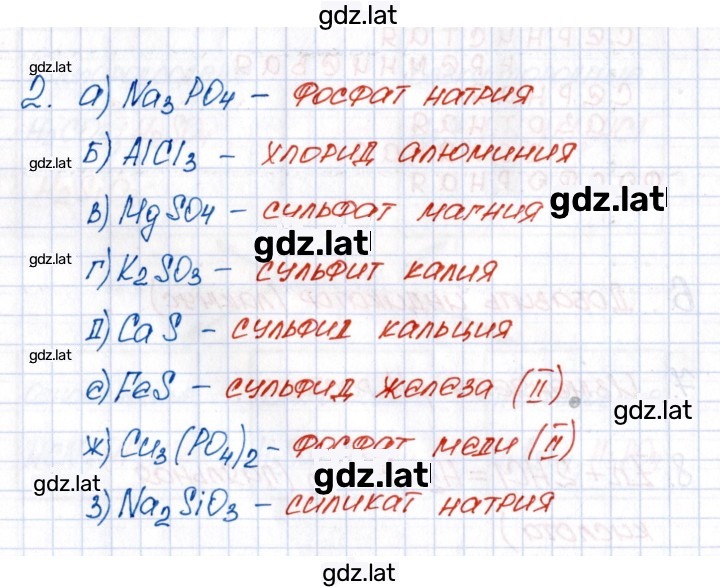 gdz.lat
gdz.lat
2. а) Na3PO4 - фосфат натрия
Б) AlCl3 - хлорид алюминия
gdz.lat
в) MgSO4 - сульфат магния
gdz.lat
gdz.lat
gdz.lat
г) K2SO3 - сульфит калия
д) CaS - сульфид кальция
gdz.lat
е) FeS - сульфид железа (II)
gdz.lat
ж) Cu3(PO4)2 - фосфат меди (II)
gdz.lat
gdz.lat
з) Na2SiO3 - силикат натрия
gdz.lat